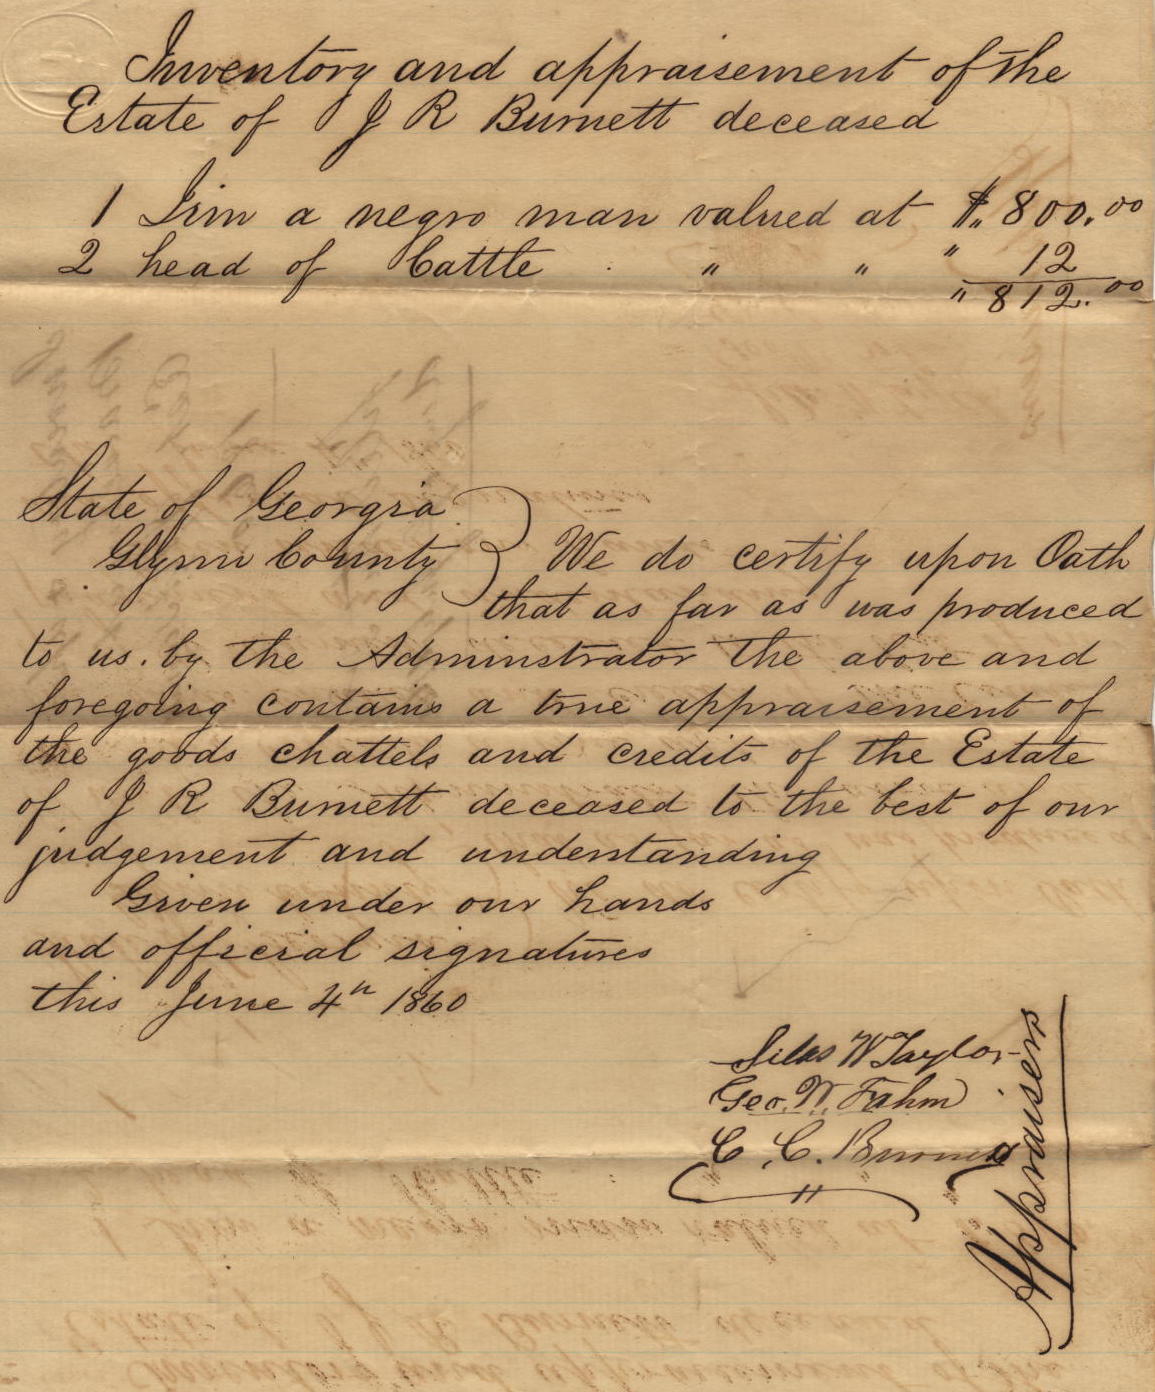 Inventory and appraisement of the
Estate of J R Burnett deceased
1 Jim a negro man valued at $.800.00
2 head of Cattle . " " " 12
" 812.00
State of Georgia
Glynn County } We do certify upon Oath
that as far as was produced
to us. by the Adminstrator the above and
foregoing contains a true appraisement of
the goods chattels and credits of the Estate
of J R Burnett deceased to the best of our
judgement and understanding
Given under our hands
and official signatures
this June 4th 1860
Silas W Taylor
Geo. W. Fahm
C. C. Burnett
Appraisers